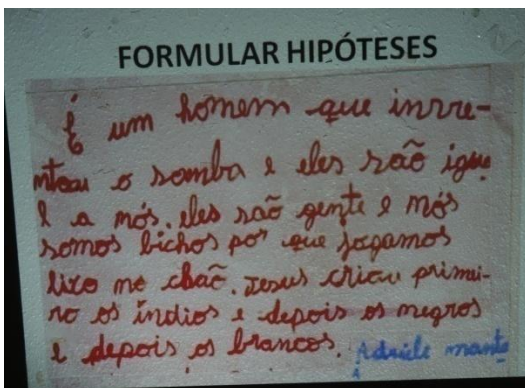 FORMULAR HIPÓTESES
É um homem que inve-
ntou o samba e eles são igua
l a nós. eles são gente e nós
somos bichos por que jogamos
lixo no chão. Jesus criou primei-
ro os índios e depois os negros
e depois os brancos.